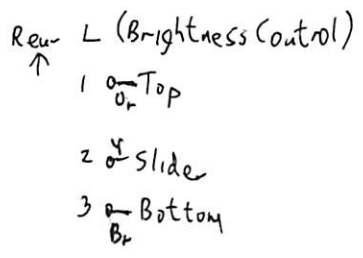 Rear L (Brightness Control)
1 Or Top
2 Y Slider
3 Br Bottom